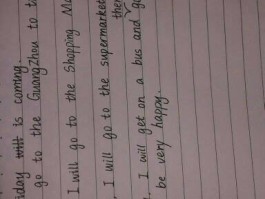 iday will is coming.
go to the GuangZhou to t
I will go to the Shopping M
I will go to the supermarket
then
I will get on a bus and go
be very happy.